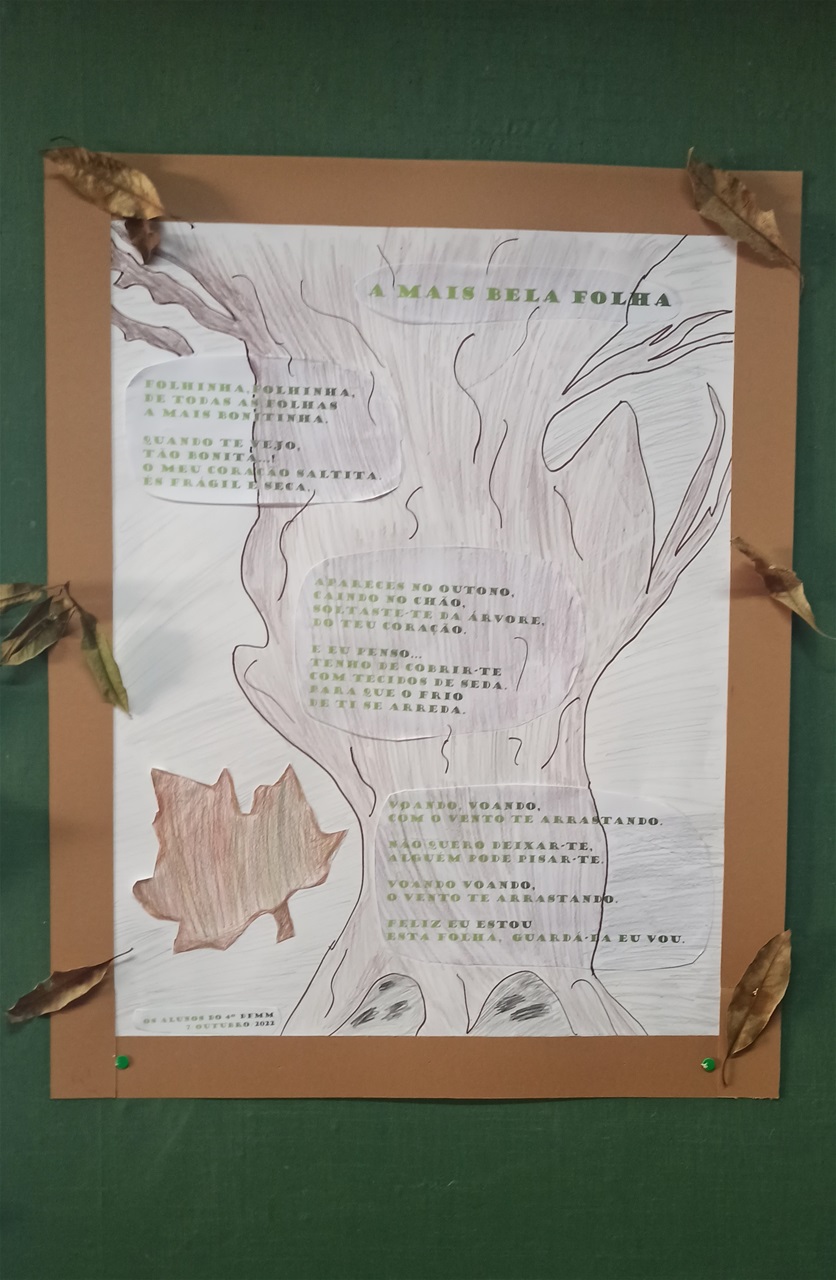 A MAIS BELA FOLHA
FOLHINHA, FOLHINHA,
DE TODAS AS FOLHAS
A MAIS BONITINHA.
QUANDO TE VEJO,
TÃO BONITA...!
O MEU CORAÇÃO SALTITA.
ÉS FRÁGIL E SECA.
APARECES NO OUTONO,
CAINDO NO CHÃO,
SOLTASTE-TE DA ÁRVORE,
DO TEU CORAÇÃO.
E EU PENSO...
TENHO DE COBRIR-TE
COM TECIDOS DE SEDA.
PARA QUE O FRIO
DE TI SE ARREDA.
VOANDO, VOANDO,
COM O VENTO TE ARRASTANDO.
NÃO QUERO DEIXAR-TE,
ALGUÉM PODE PISAR-TE.
VOANDO VOANDO,
O VENTO TE ARRASTANDO.
FELIZ EU ESTOU
ESTA FOLHA, GUARDÁ-LA EU VOU.
OS ALUNOS DO 4º
OUTUBRO 2022